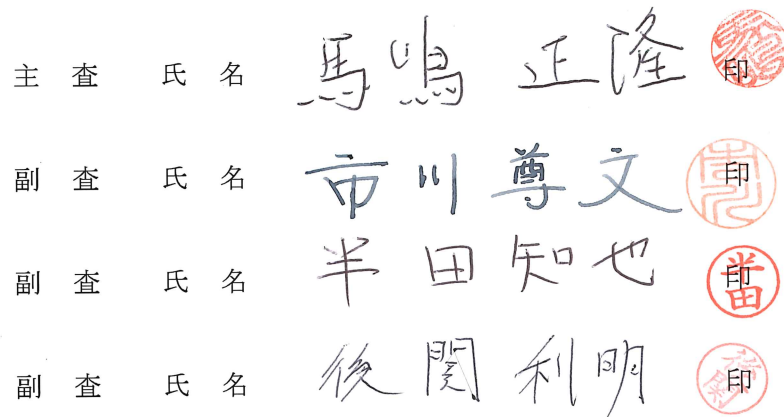 主 査 氏 名 馬嶋 正隆 印
副 査 氏 名 市川 尊文 印
副 査 氏 名 半田 知也 印
副 査 氏 名 後関 利明 印